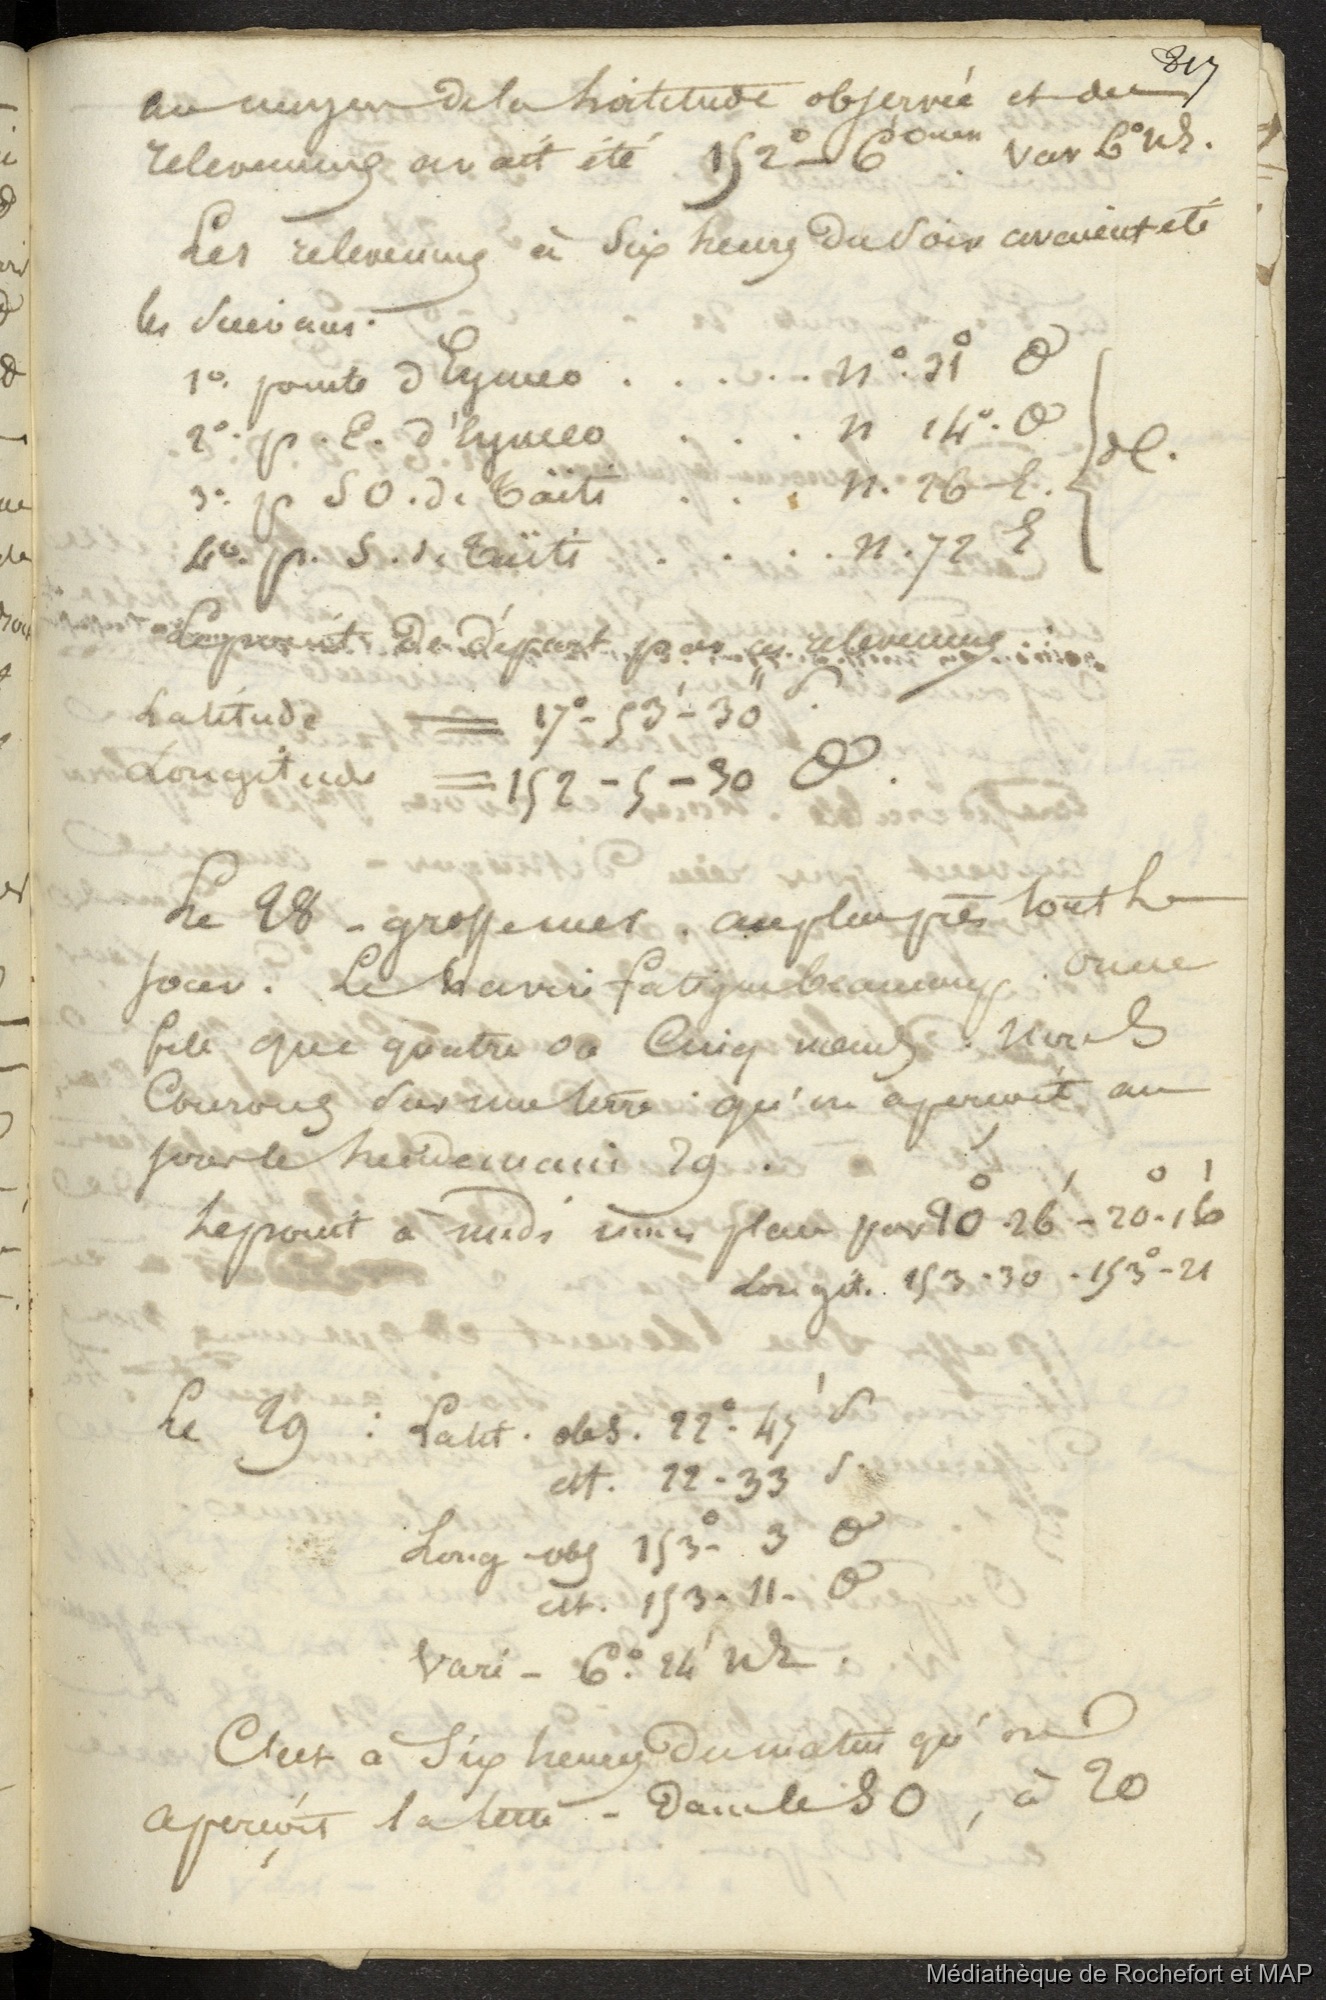 317
au moyen de la latitude observée et des
relevemens avait été 152° - 6' Ouest. Var 6° NE.
Les relevemens à Six heures du Soir avaient été
les Suivans.
1°. pointe d'Eymeo . . . . . N. 31° O
2°. p. E. d'Eymeo . . . N 14°. O
3°. p SO. de Taïti . . . N. 26 E.
4°. p. S. de Taïti . . . . N. 72 E
Le point de départ par ces relevemens :
Latitude = 17° - 53' - 30" S.
Longitude = 152 - 5 - 30 O.
Le 28 - grosse mer. au plus près tout le
jour. Le navire fatigue beaucoup. on ne
file que quatre ou Cinq noeuds. Nous
Courons sur une terre qu'on aperçoit au
jour le lendemain 29.
Le point à midi nous place par 20° 26' - 20° 16'
Longit. 153 - 30 - 153° - 21
Le 29 : Latit. obs. 22°. 47' S
est. 22 - 33 S.
Long - obs 153° - 3 O
est. 153 - 11 - O
Vari - 6°. 24' NE.
C'est à Six heures du matin qu'on
aperçoit la terre - Dans le SO, à 20
Médiathèque de Rochefort et MAP